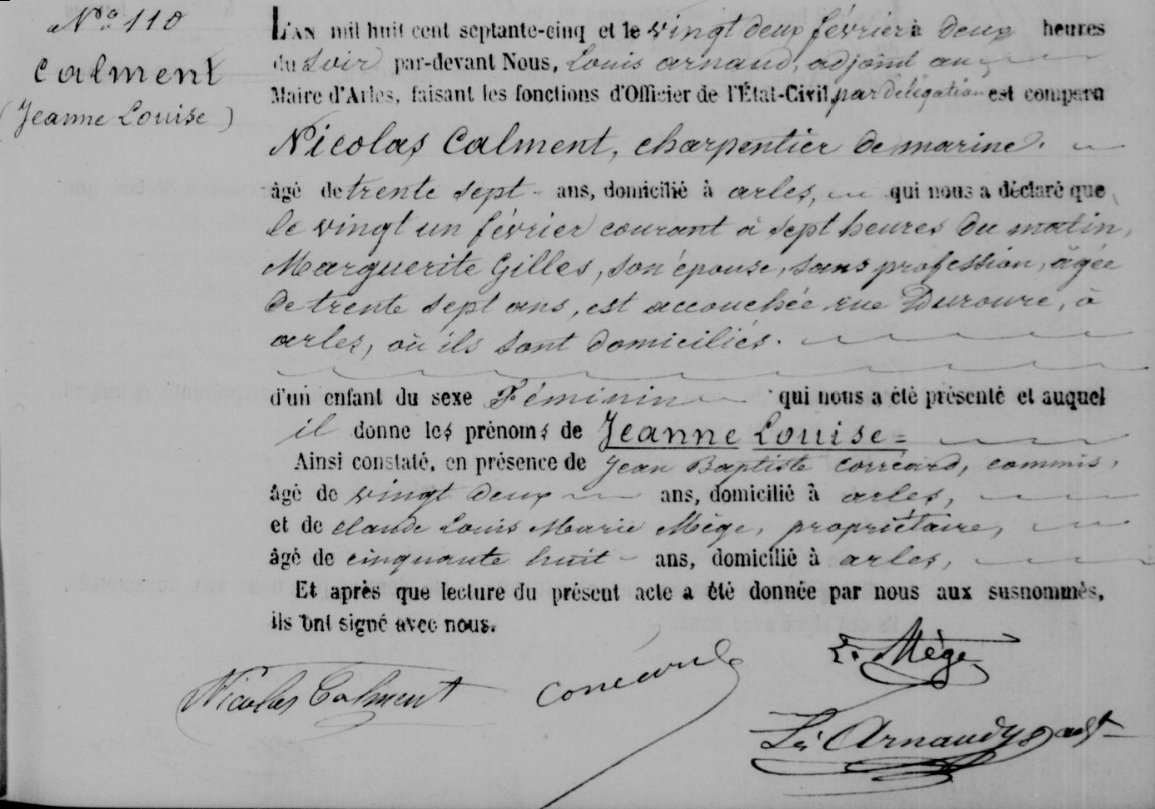 N° 110
Calment
(Jeanne Louise)
L'AN mil huit cent septante-cinq et le vingt deux février à deux heures
du soir par-devant Nous, Louis arnaud, adjoint au
Maire d'Arles, faisant les fonctions d'Officier de l'État-Civil, par délégation est comparu
Nicolas Calment, charpentier de marine.
âgé de trente sept ans, domicilié à arles, qui nous a déclaré que
le vingt un février courant à sept heures du matin,
Marguerite Gilles, son épouse, sans profession, âgée
de trente sept ans, est accouchée rue Duroure, à
arles, où ils sont domiciliés.
d'un enfant du sexe Féminin qui nous a été présenté et auquel
il donne les prénoms de Jeanne Louise =
Ainsi constaté, en présence de Jean Baptiste corréard, commis,
âgé de vingt deux ans, domicilié à arles,
et de claude Louis Marie Mège, propriétaire,
âgé de cinquante huit ans, domicilié à arles,
Et après que lecture du présent acte a été donnée par nous aux susnommés,
ils ont signé avec nous.
L. Mège
Nicolas Calment corréard
Ls Arnaud adjt